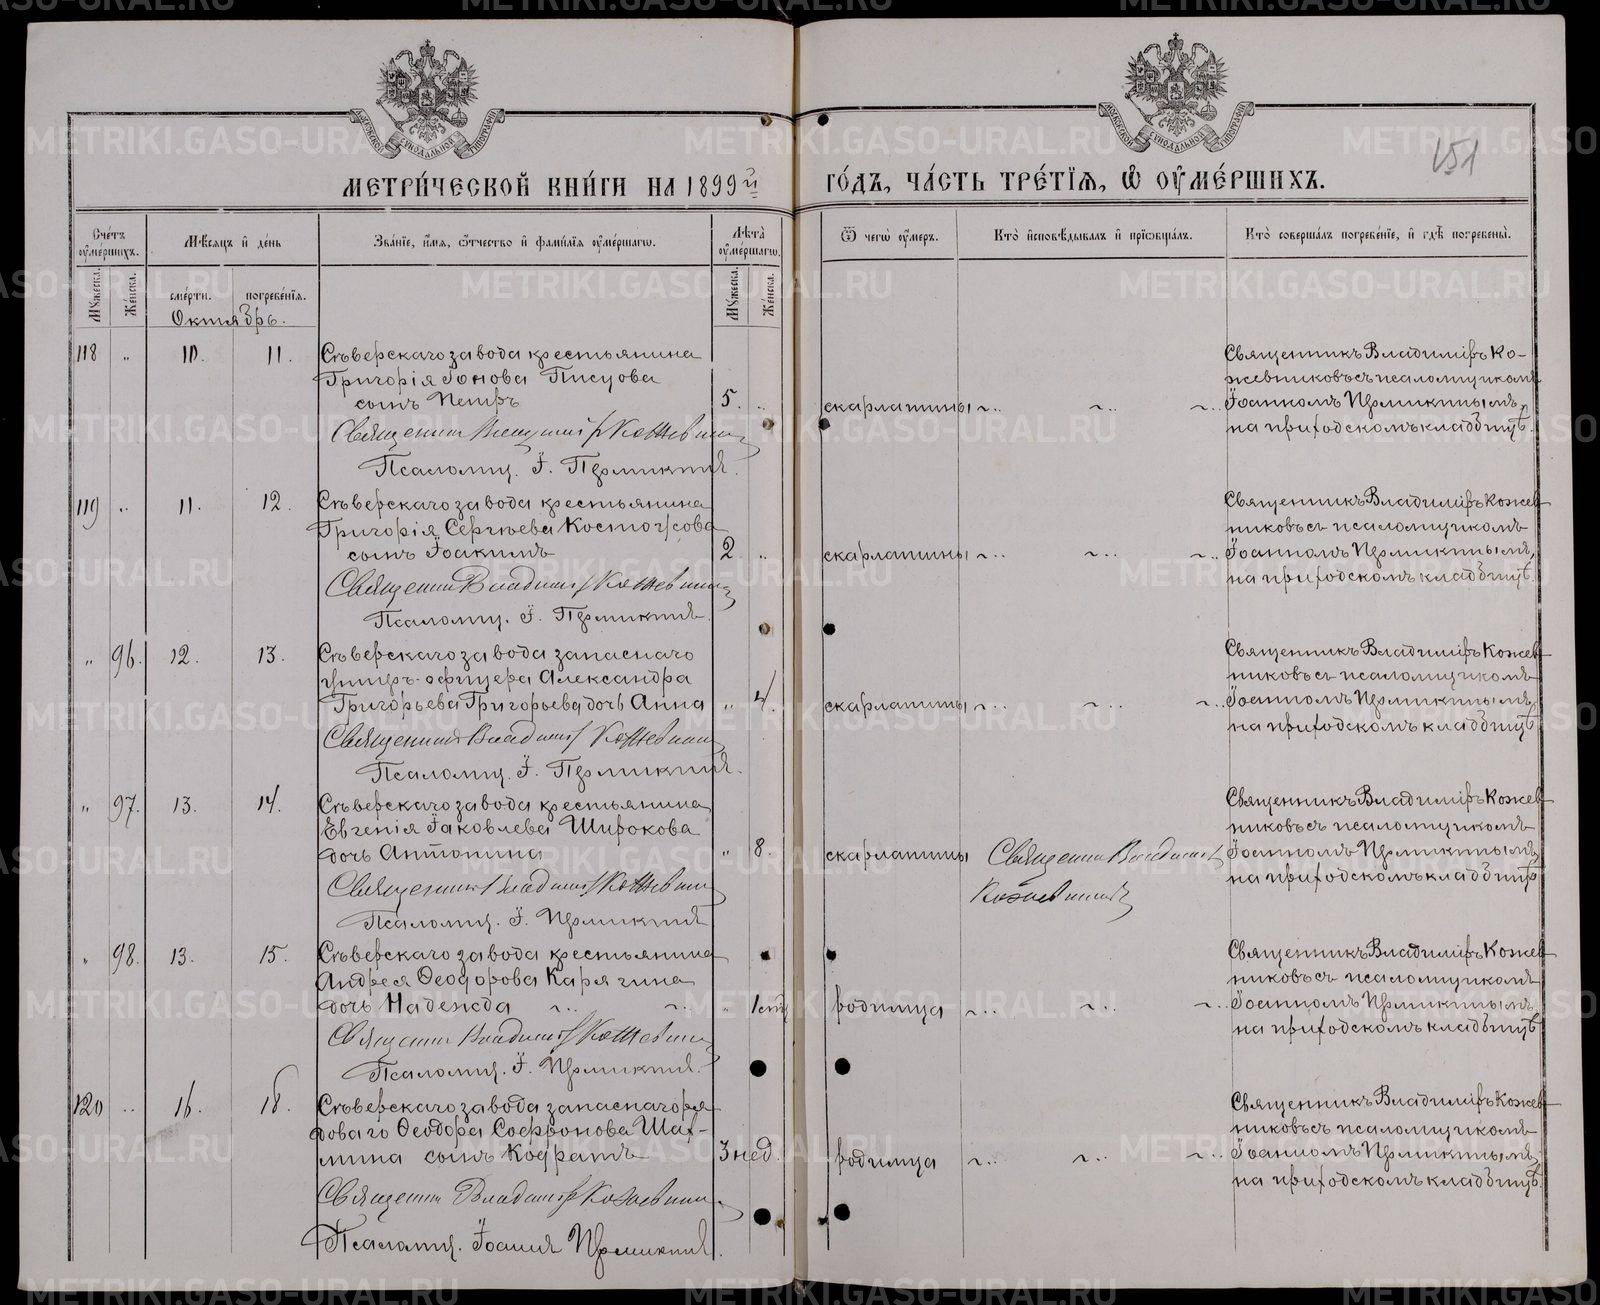 МЕТРИ́ЧЕСКОЙ КНИ́ГИ НА 1899й ГО́ДЪ, ЧА́СТЬ ТРЕ́ТЇѦ, Ѡ҆ ОУ҆МЕ́РШИХЪ.
151
Сче́тъ оу҆ме́ршихъ.
Мѣ́сяцъ и҆ де́нь
Зва́нїе, и҆́мѧ, ѻ҆́тчество и҆ фами́лїѧ оу҆ме́ршагѡ.
Лѣ́та оу҆ме́ршагѡ.
Ѿ чегѡ̀ оу҆́меръ.
Кто̀ и҆сповѣ́дывалъ и҆ прїѡбща́лъ.
Кто̀ соверша́лъ погребе́нїе, и҆ гдѣ̀ погребены̀.
Мꙋ́жеска.
Же́нска.
сме́рти.
погребе́нїѧ.
Мꙋ́жеска.
Же́нска.
Октябрь.
118 „ 10. 11. Сѣверскаго завода крестьянина
Григорія Іонова Писцова
сынъ Петръ 5. „
Священникъ Владиміръ Кожевниковъ
Псаломщ. І. Пермикинъ.
скарлатины
Священникъ Владиміръ Ко-
жевниковъ съ псаломщикомъ
Іоанномъ Пермикинымъ,
на приходскомъ кладбищѣ.
119 „ 11. 12. Сѣверскаго завода крестьянина
Григорія Сергѣева Костоусова
сынъ Іоакимъ 2 „
Священникъ Владиміръ Кожевниковъ
Псаломщ. І. Пермикинъ.
скарлатины
Священникъ Владиміръ Кожев-
никовъ съ псаломщикомъ
Іоанномъ Пермикинымъ,
на приходскомъ кладбищѣ.
„ 96. 12. 13. Сѣверскаго завода запаснаго
унтеръ-офицера Александра
Григорьева Григорьева дочь Анна „ 4.
Священникъ Владиміръ Кожевниковъ
Псаломщ. І. Пермикинъ.
скарлатины
Священникъ Владиміръ Кожев-
никовъ съ псаломщикомъ
Іоанномъ Пермикинымъ,
на приходскомъ кладбищѣ
„ 97. 13. 14. Сѣверскаго завода крестьянина
Евгенія Іаковлева Широкова
дочь Антонина „ 8.
Священникъ Владиміръ Кожевниковъ
Псаломщ. І. Пермикинъ
скарлатины
Священникъ Владиміръ
Кожевниковъ
Священникъ Владиміръ Кожев-
никовъ съ псаломщикомъ
Іоанномъ Пермикинымъ,
на приходскомъ кладбищѣ
„ 98. 13. 15. Сѣверскаго завода крестьянина
Андрея Ѳеодорова Карягина
дочь Надежда „
Священникъ Владиміръ Кожевниковъ
Псаломщ. І. Пермикинъ.
родимца
Священникъ Владиміръ Кожев-
никовъ съ псаломщикомъ
Іоанномъ Пермикинымъ,
на приходскомъ кладбищѣ
120 „ 16. 18. Сѣверскаго завода запаснаго ря-
доваго Ѳеодора Софронова Шах-
мина сынъ Кодратъ 3 нед.
Священникъ Владиміръ Кожевниковъ
Псаломщ. Іоаннъ Пермикинъ.
родимца
Священникъ Владиміръ Кожев-
никовъ съ псаломщикомъ
Іоанномъ Пермикинымъ,
на приходскомъ кладбищѣ.
METRIKI.GASO-URAL.RU